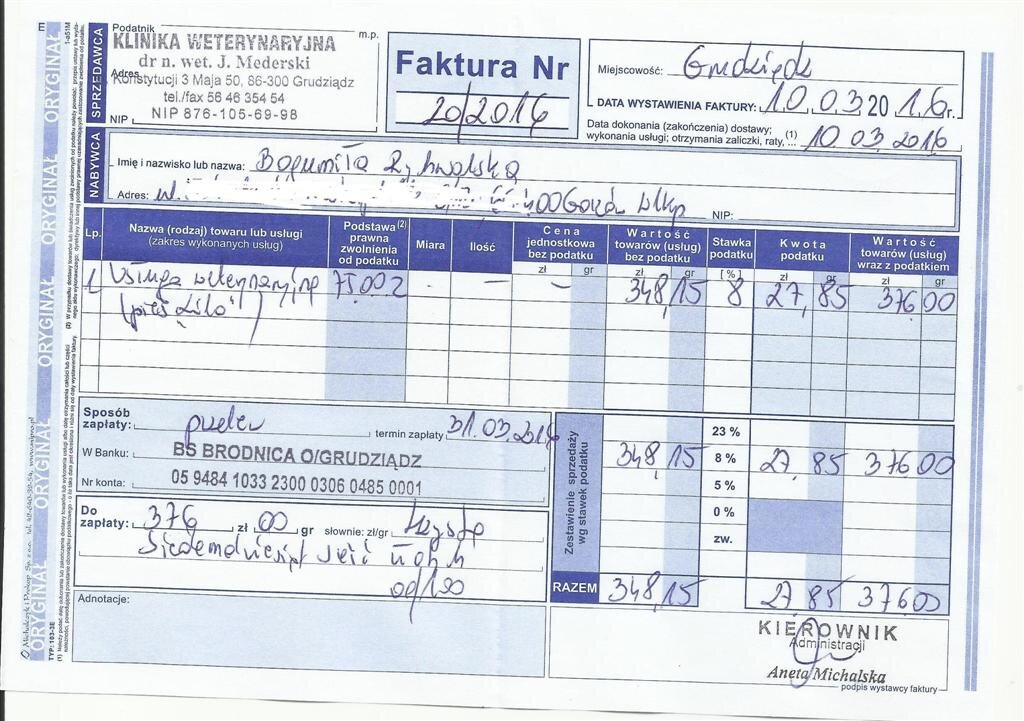 E
Podatnik
m.p.
KLINIKA WETERYNARYJNA
dr n. wet. J. Mederski
Adres
Konstytucji 3 Maja 50, 86-300 Grudziądz
tel./fax 56 46 354 54
NIP 876-105-69-98
NIP
SPRZEDAWCA
Faktura Nr
20/2016
Miejscowość: Grudziądz
DATA WYSTAWIENIA FAKTURY: 10.03.2016 r.
Data dokonania (zakończenia) dostawy;
wykonania usługi; otrzymania zaliczki, raty, ... (1) 10 03 2016
NABYWCA
Imię i nazwisko lub nazwa: Bogumiła
Adres: ul. 400 Gorzów Wlkp
NIP:
Lp. Nazwa (rodzaj) towaru lub usługi (zakres wykonanych usług) Podstawa (2) prawna zwolnienia od podatku Miara Ilość Cena jednostkowa bez podatku Wartość towarów (usług) bez podatku Stawka podatku Kwota podatku Wartość towarów (usług) wraz z podatkiem
zł gr zł gr [%] zł gr zł gr
1 Usługa weterynaryjna 75.00.2 - - - 348,15 8 27,85 376 00
(pies "Lilo")
Sposób
zapłaty: przelew termin zapłaty 31.03.2016
W Banku: BS BRODNICA O/GRUDZIĄDZ
Nr konta: 05 9484 1033 2300 0306 0485 0001
Zestawienie sprzedaży
wg stawek podatku
23 %
348,15 8 % 27 85 376 00
5 %
0 %
zw.
RAZEM 348,15 27 85 376 00
Do
zapłaty: 376 zł 00 gr słownie: zł/gr trzysta
siedemdziesiąt sześć złotych
00/100
Adnotacje:
KIEROWNIK
Administracji
Aneta Michalska
podpis wystawcy faktury
ORYGINAŁ ORYGINAŁ ORYGINAŁ ORYGINAŁ ORYGINAŁ ORYGINAŁ
TYP: 103-3E